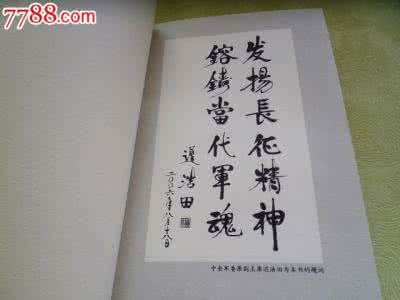 7788.com
发揚長征精神
鎔鑄當代軍魂
遲浩田
二〇〇六年八月十八日
中央军委原副主席迟浩田为本书的题词